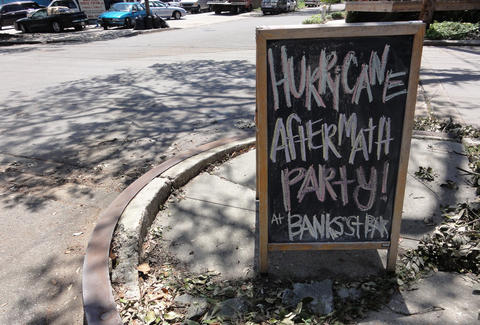 HURRICANE
AFTERMATH
PARTY!
AT BANKS ST BAR